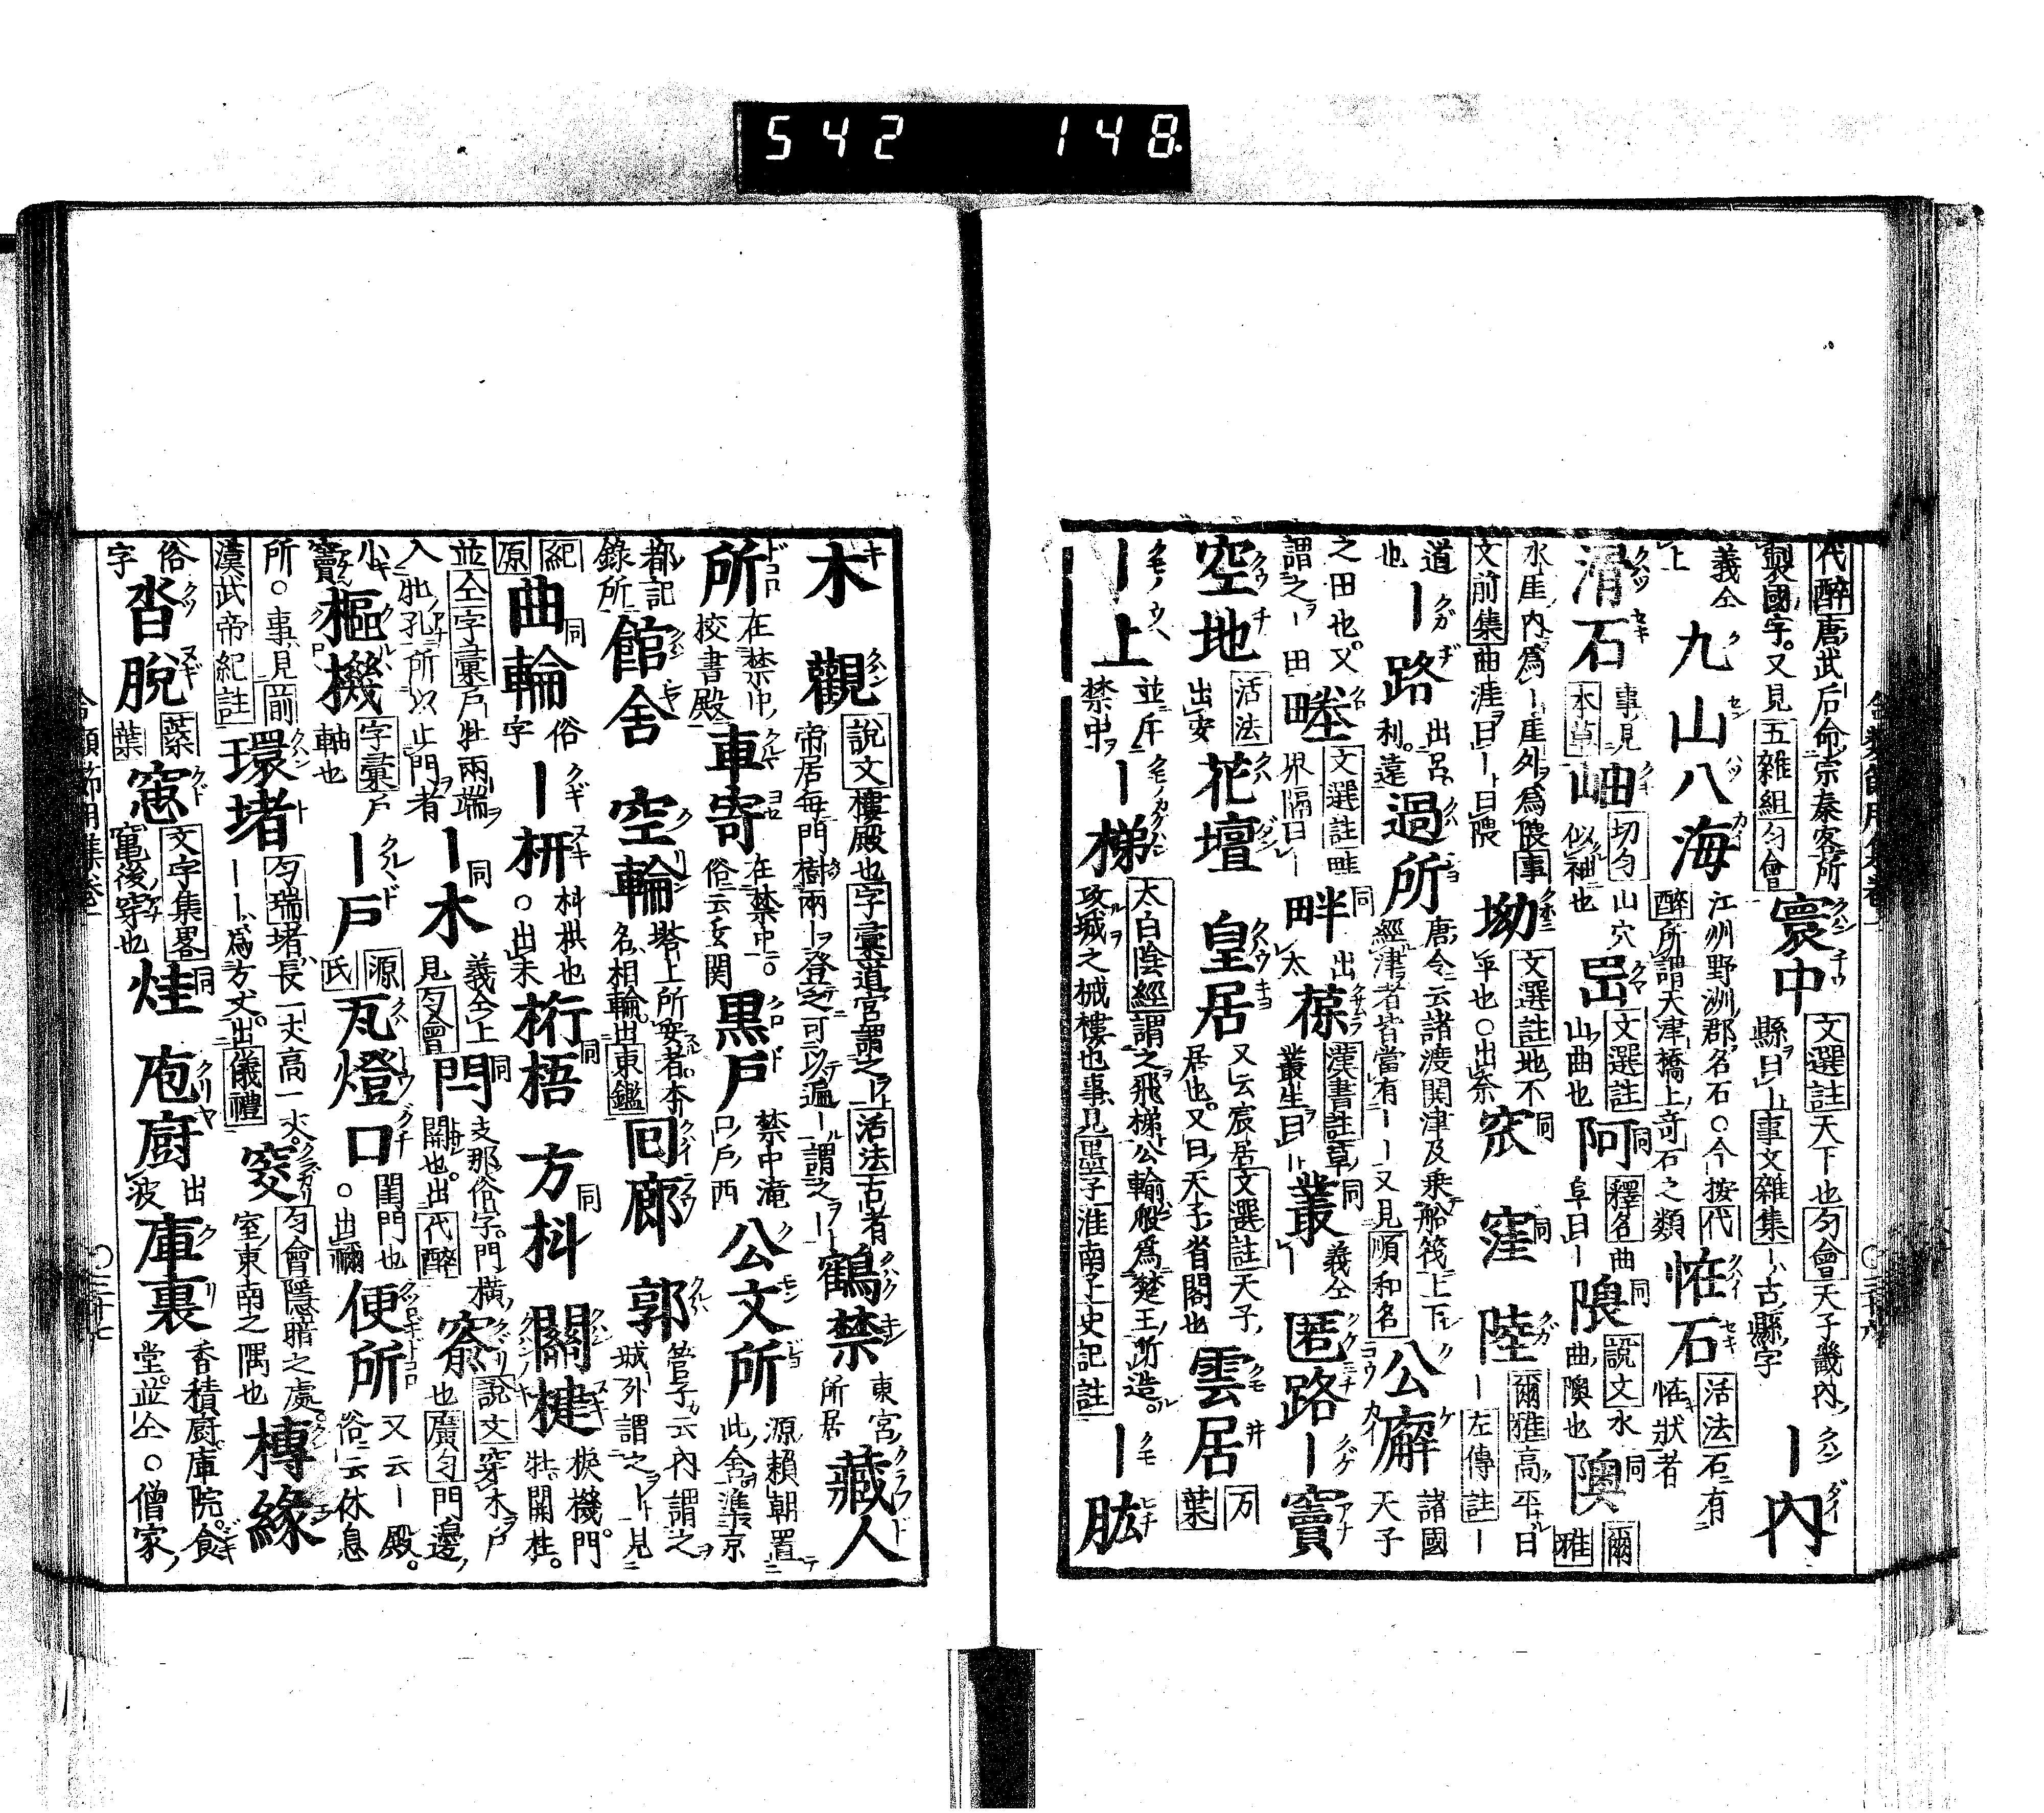 542 148.
代醉唐武后命宗秦客所製國字。又見五雜組勻會寰中文選註天下也勻會天子畿内縣曰ー事文雜集ー古縣字ー内
義仝上九山八海江州野洲郡名石○今按代醉所謂天津橋上竒石之類恠石活法石有恠狀者
滑石事見本草岫切勻山穴似袖也㟴文選註山曲也阿同釋名曲阜曰ー隈同説文水曲隩也隩同爾雅
水厓内爲ー厓外爲隈事文前集曲涯曰ー曰隈坳文選註地不平也○出奈窊同窪同陸爾雅高平曰ー左傳註ー
道也ー路出呂利遠過所唐令云諸渡関津及乗船筏上下經津者皆當有ーー又見順和名公廨諸國天子
之田也。又謂之ー田畻文選註畦界隔曰ー畔同出太葆漢書註草叢生曰ー叢同義仝匿路ー竇
空地活法出安花壇皇居又云宸居文選註天子居也。又曰天子省閣也雲居万葉
ー上並斥禁中ー梯太白陰經謂之飛梯公輸般爲楚王所造。攻城之械樓也事見墨子淮南子史記註ー肱
合類節用集卷一
○三十六
木觀説文樓殿也字彙道宮謂之ー活法古者帝居毎門樹兩ー登之可以遍ー謂之ー鶴禁東宮所居藏人
所在禁中校書殿車寄在禁中○俗云玄関黒戸禁中滝口戸西公文所源頼朝置此舍準京
都記録所館舍空輪塔上所安者本名相輪出東鑑回廊郭管子云内謂之城外謂之ー見
紀原曲輪同俗字ー枅枓栱也○出末桁梧同方枓同關楗楗機門牡開柱。
並仝字彙戸牡兩端入牝孔所以止門者ー木同義仝上見勻會閂同支那俗字門横開也。出代醉窬説文穿木戸也廣勻門邊
小竇樞機字彙戸軸也ー戸源氏瓦燈口閨門也○出禰便所又云ー殿。俗云休息
所○事見前漢武帝紀註環堵勻瑞堵長一丈高一丈ーー爲方丈。出儀禮窔勻會隱暗之處。室東南之隅也槫縁
俗字沓脱蘂葉窻文字集畧竃後穿也烓同庖厨出波庫裏香積厨庫院食堂並仝○僧家
合類節用集卷一
○三十七